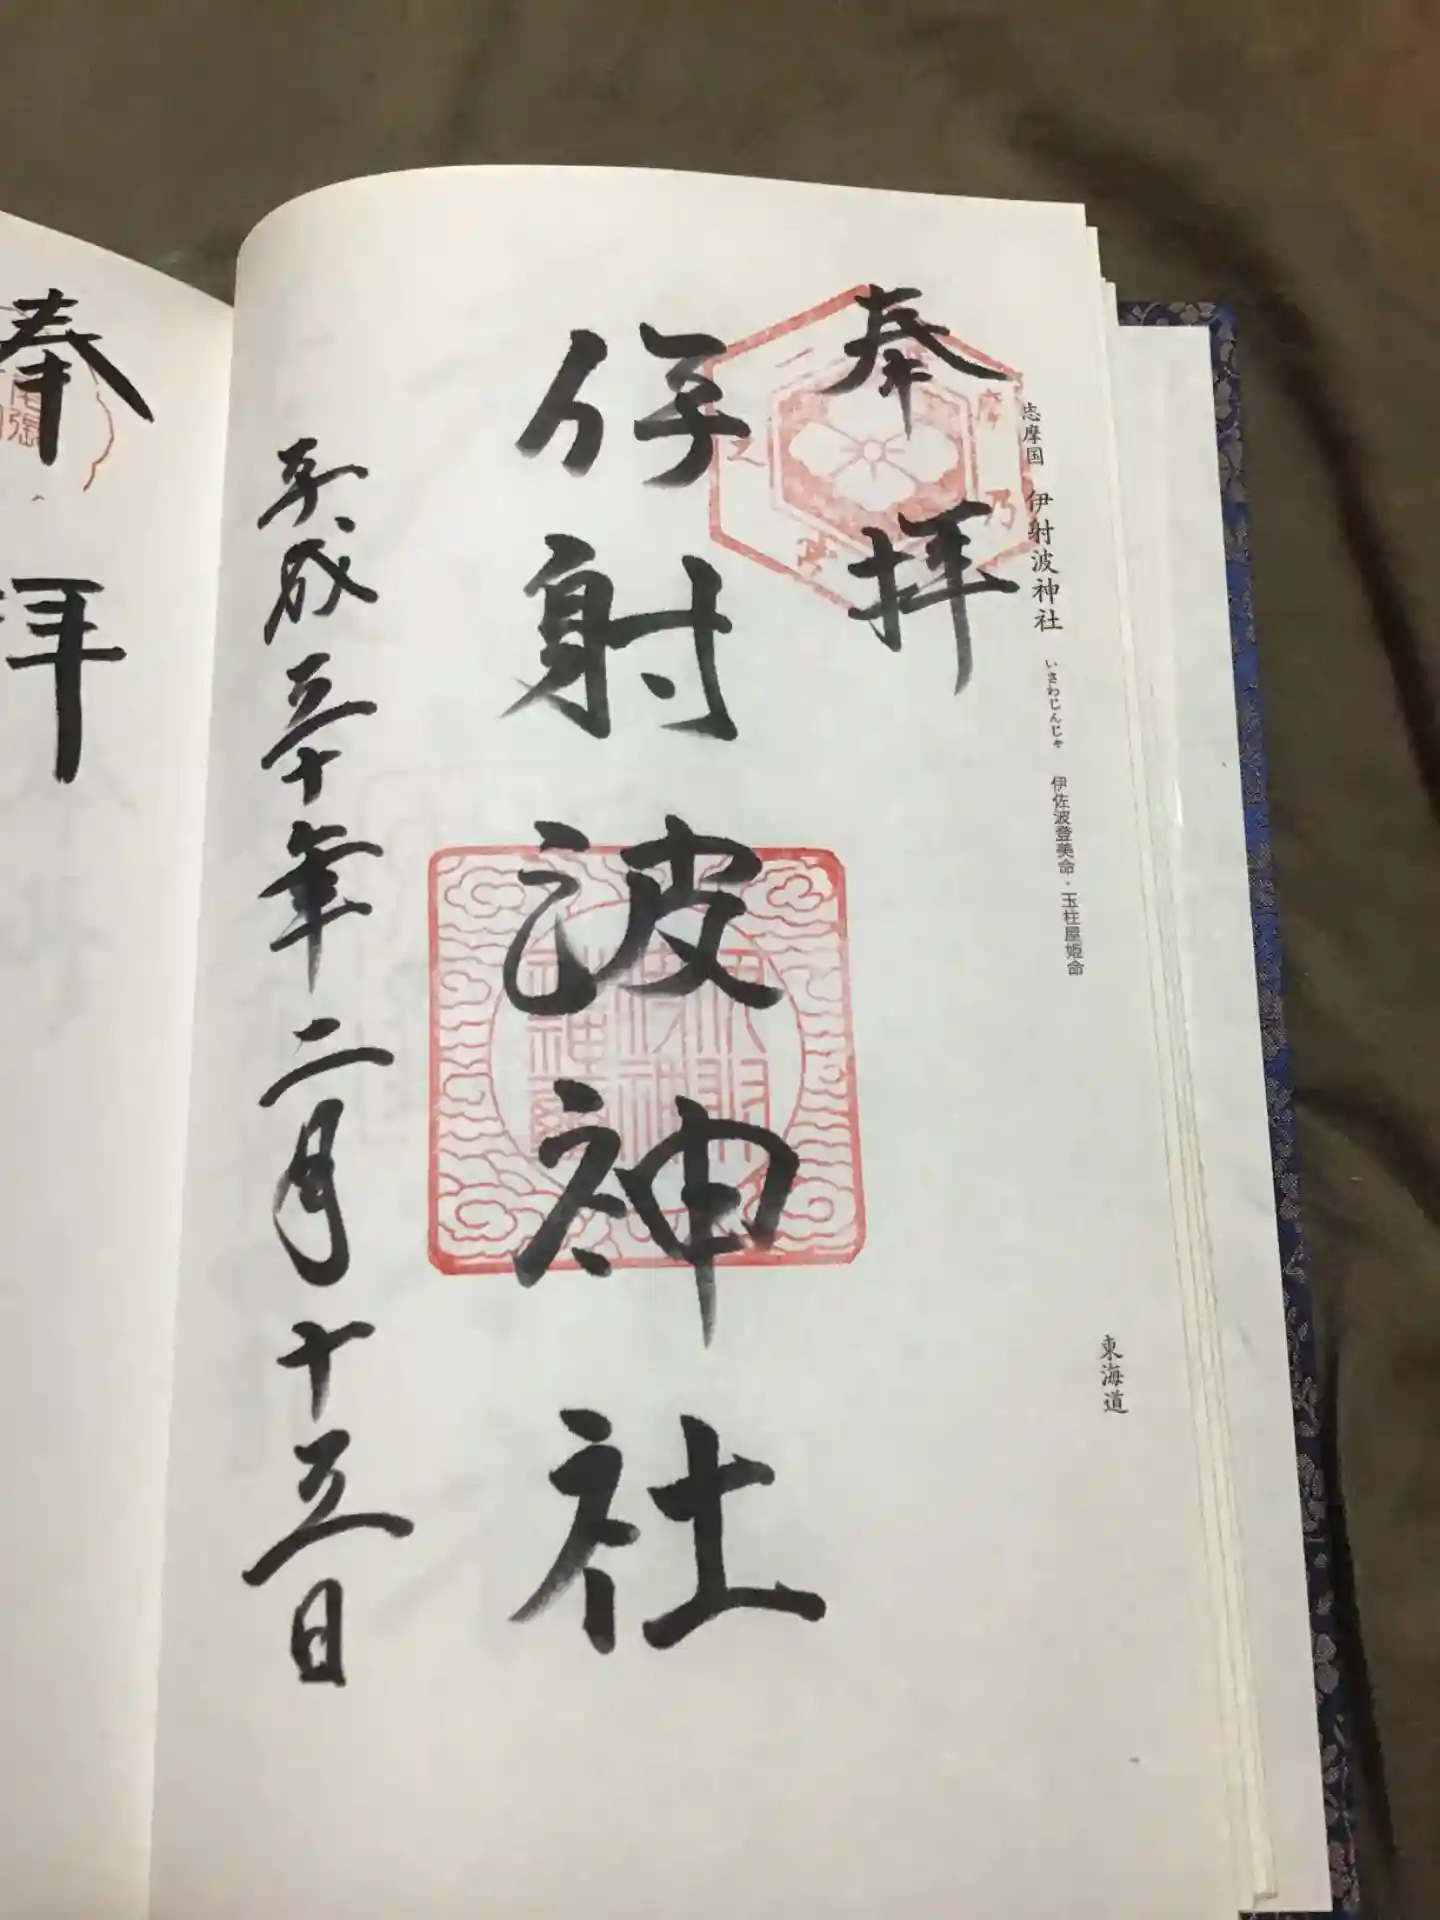 志摩国 伊射波神社 いさわじんじゃ 伊佐波登美命・玉柱屋姫命 東海道
奉拝
伊射波神社
平成三十年二月十三日
奉拝